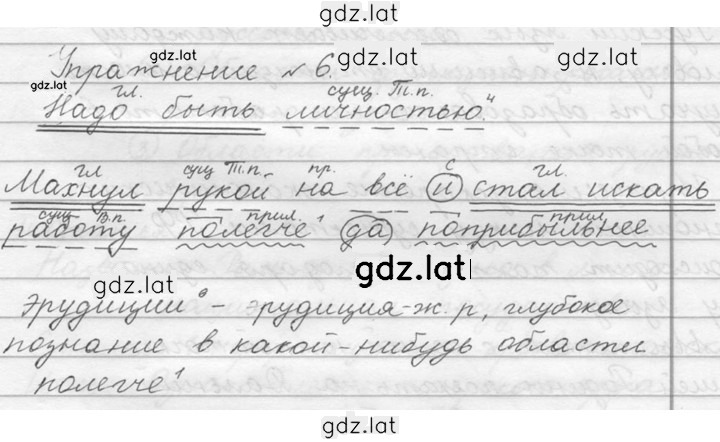 gdz.lat
Упражнение № 6.
gdz.lat
gdz.lat
gdz.lat
гл. сущ. Т.п.
Надо быть личностью."4
гл сущ Т.п. пр. с гл.
Махнул рукой на всё и стал искать
сущ В.п. прил. прил
работу полегче1 да поприбыльнее
gdz.lat
gdz.lat
Эрудиции6 – эрудиция - ж. р, глубокое
познание в какой-нибудь области
полегче1
gdz.lat